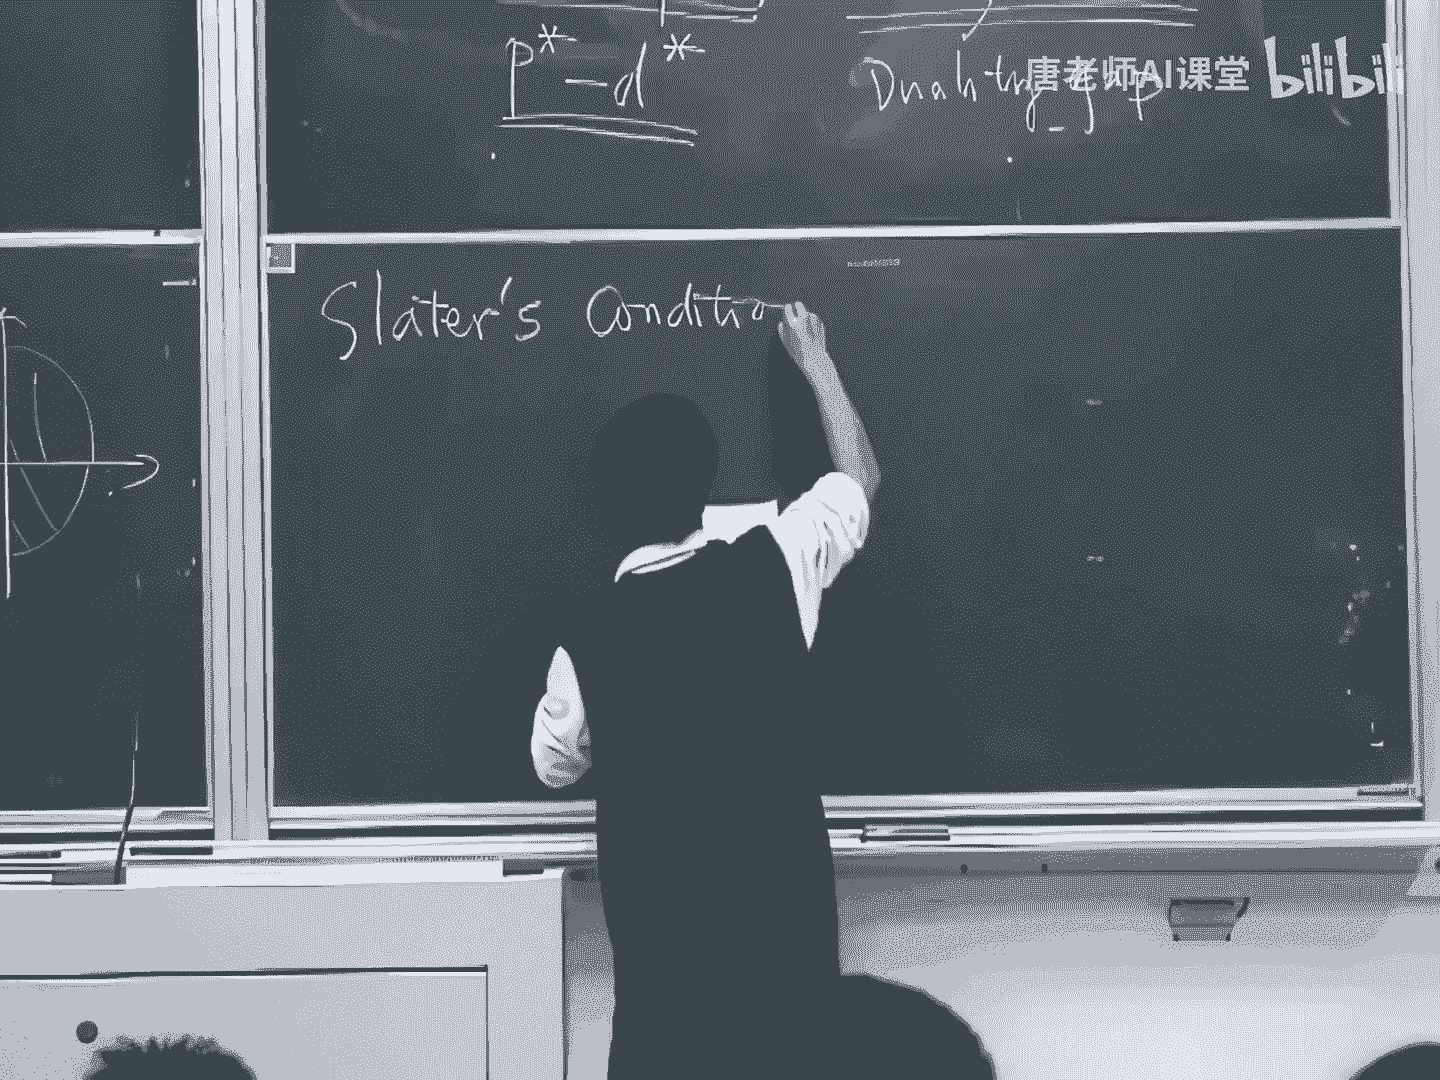 p* - d*
Duality gap
唐老师AI课堂 bilibili
Slater's Conditio